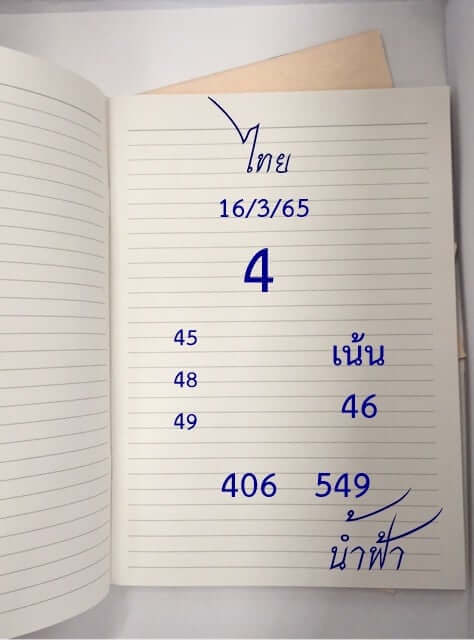 ไทย
16/3/65
4
45
48
49
เน้น
46
406 549
น้ำฟ้า